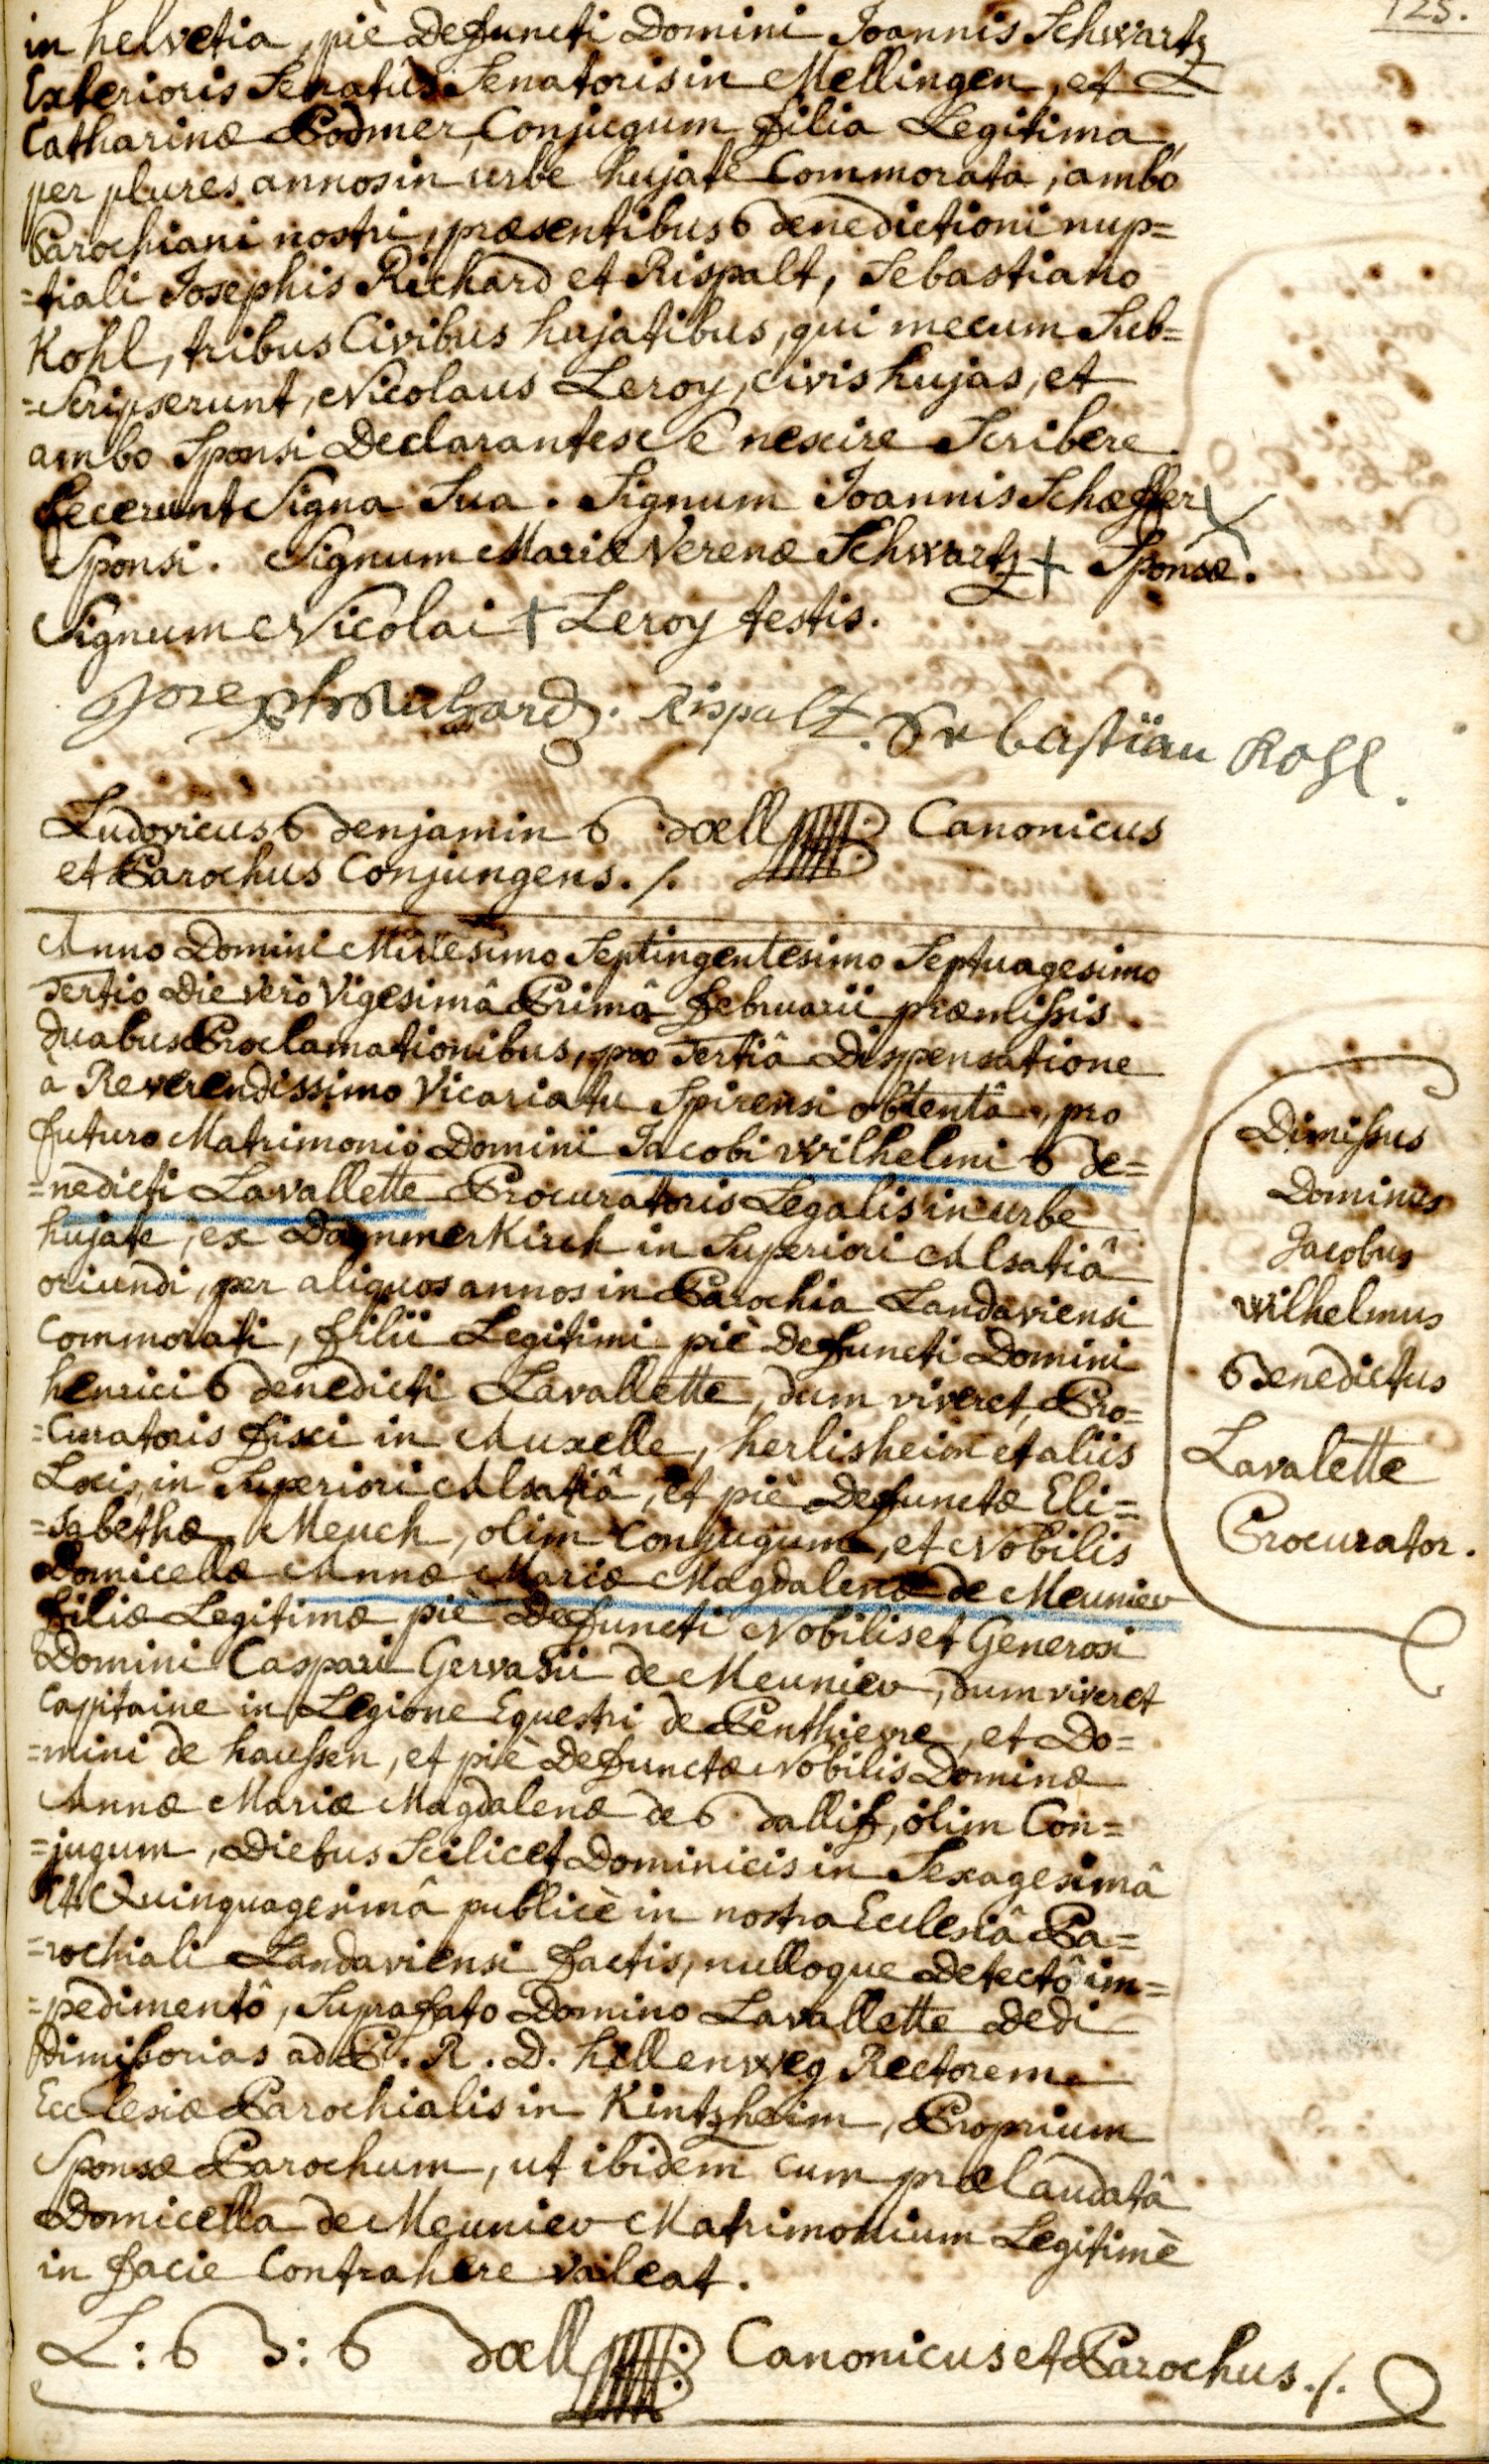 125.
in helvetia, piè Defuncti Domini Joannis Schwartz
Exterioris Senatûs Senatoris in Mellingen, et
Catharinæ Bodmer, Conjugum filia Legitima,
per plures annos in urbe hujate Commorata, ambo
Parochiani nostri, præsentibus Benedictioni nup=
=tiali Josephis Richard et Rispalt, Sebastiano
Kohl, tribus Civibus hujatibus, qui mecum Sub=
=Scripserunt, Nicolaus Leroy, civis hujas, et
ambo Sponsi Declarantes se nescire Scribere
fecerunt Signa Sua. Signum Joannis Schæffer X
Sponsi. Signum Mariæ Verenæ Schwartz + Sponsæ.
Signum Nicolai + Leroy testis.
Joseph Richard. Rispalt. Sebastiian Kohl.
Ludovicus Benjamin Boell Canonicus
et Parochus Conjungens ./.
Anno Domini Millesimo Septingentesimo Septuagesimo
Tertio Die verò Vigesimâ Primâ februarii præmissis
Duabus Proclamationibus, pro Tertiâ Dispensatione
à Reverendissimo Vicariatu Spirensi obtentâ, pro
futuro Matrimonio Domini Jacobi Wilhelmi Be=
=nedicti Lavallette Procuratoris Legalis in urbe
hujate, ex Dammerkirch in Superiori Alsatiâ
oriundi, per aliquos annos in Parochia Landaviensi
Commorati, filii Legitimi piè Defuncti Domini
henrici Benedicti Lavallette, dum viveret, Pro=
=Curatoris fisci in Muxelle, herlisheim et aliis
Locis, in Superiori Alsatiâ, et piè Defunctæ Eli=
=sabethæ Meuch, olim Conjugum, et Nobilis
Domicellæ Annæ Mariæ Magdalenæ de Meuniev
filiæ Legitimæ piè Defuncti Nobilis et Generosi
Domini Caspari Gervasii de Meuniev, dum viveret
Capitaine in Legione Equestri de Penthievre, et Do=
=mini de haussen, et piè Defunctæ Nobilis Dominæ
Annæ Mariæ Magdalenæ de Balliss, olim Con=
=jugum, Diebus Scilicet Dominicis in Sexagesimâ
et Quinquagesimâ publicè in nostra Ecclesiâ Pa=
=rochiali Landaviensi factis, nulloque Detectô im=
=pedimentô, Suprafato Domino Lavallette Dedi
Dimissorias ad P. R. D. hellenweg Rectorem
Ecclesiæ Parochialis in Kintzheim, Proprium
Sponsæ Parochum, ut ibidem cum prælaudatâ
Domicella de Meuniev Matrimonium Legitimè
in facie Contrahere valeat.
L: B: Boell Canonicus et Parochus ./.
Dimissus
Dominus
Jacobus
Wilhelmus
Benedictus
Lavalette
Procurator.